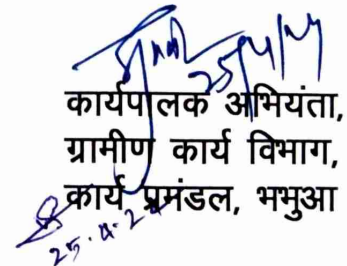 25/4/24
कार्यपालक अभियंता,
ग्रामीण कार्य विभाग,
कार्य प्रमंडल, भभुआ
25.4.24